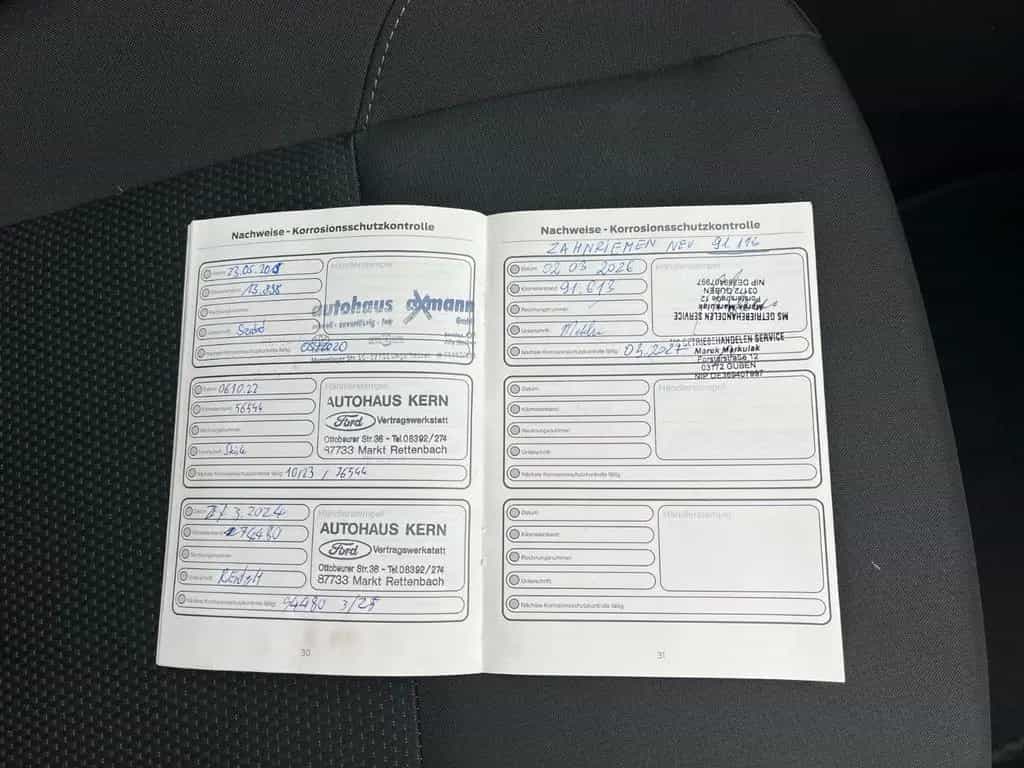 Nachweise - Korrosionsschutzkontrolle
Datum 23.05.20
Händlerstempel
Kilometerstand 13.898
autohaus axmann
GmbH
Rechnungsnummer
Unterschrift
Nächste Korrosionsschutzkontrolle fällig 05/2020
Datum 06.10.22
Händlerstempel
Kilometerstand 56544
AUTOHAUS KERN
Ford Vertragswerkstatt
Rechnungsnummer
Ottobeurer Str.36 - Tel.08392/274
Unterschrift
87733 Markt Rettenbach
Nächste Korrosionsschutzkontrolle fällig 10/23 / 76544
Datum 3.2024
Händlerstempel
Kilometerstand 74480
AUTOHAUS KERN
Ford Vertragswerkstatt
Rechnungsnummer
Ottobeurer Str.36 - Tel.08392/274
Unterschrift
87733 Markt Rettenbach
Nächste Korrosionsschutzkontrolle fällig 94480 3/25
30
Nachweise - Korrosionsschutzkontrolle
ZAHNRIEMEN NEU 91 116
Datum 02 03 2026
Händlerstempel
Kilometerstand 91.613
NIP DE369407997
03172 GUBEN
Forsterstraße 12
Marek Markulak
MS GETRIEBEHANDELEN SERVICE
Rechnungsnummer
Unterschrift
Nächste Korrosionsschutzkontrolle fällig 03.2027
MS GETRIEBEHANDELEN SERVICE
Marek Markulak
Forsterstraße 12
03172 GUBEN
NIP DE369407997
Datum
Händlerstempel
Kilometerstand
Rechnungsnummer
Unterschrift
Nächste Korrosionsschutzkontrolle fällig
Datum
Händlerstempel
Kilometerstand
Rechnungsnummer
Unterschrift
Nächste Korrosionsschutzkontrolle fällig
31